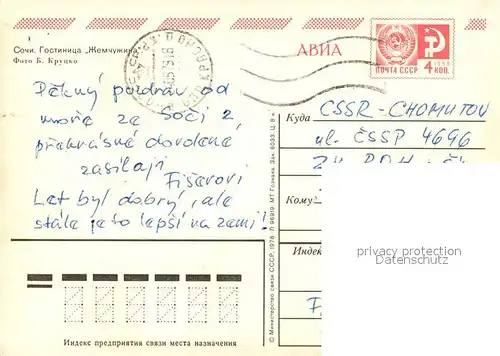 Сочи. Гостиница „Жемчужина
Фото Б. Круцко
АВИА
ПОЧТА СССР
4 КОП.
Pěkný pozdrav od
moře ze Soči z
překrásné dovolené
zasílají
Fišerovi
Let byl dobrý, ale
stále je to lepší na zemi!
Куда
ČSSR-CHOMUTOV
ul. ČSSP 4696
Кому
Индекс
© Министерство связи СССР, 1978
МТ Гознака. Зак. 6033. Ц. 8 к.
privacy protection
Datenschutz
Индекс предприятия связи места назначения